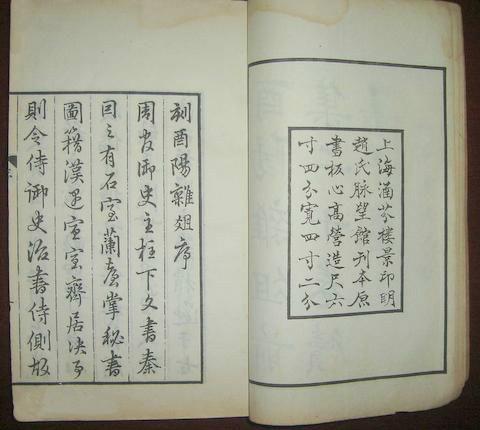 上海涵芬樓景印明
趙氏脉望館刊本原
書板心高營造尺六
寸四分寬四寸二分
刻酉陽雜俎序
周官御史主柱下文書秦
因之有石室蘭臺掌秘書
圖籍漢宣室齊居決事
則令侍御史治書侍側故